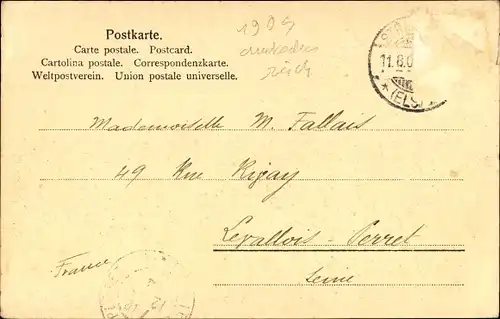 Postkarte.
Carte postale. Postcard.
Cartolina postale. Correspondenzkarte.
Weltpostverein. Union postale universelle.
1909
11.8.0
(ELS.
Mademoiselle M. Fallais
49 Rue Rigay
Levallois-Perret
Seine
France